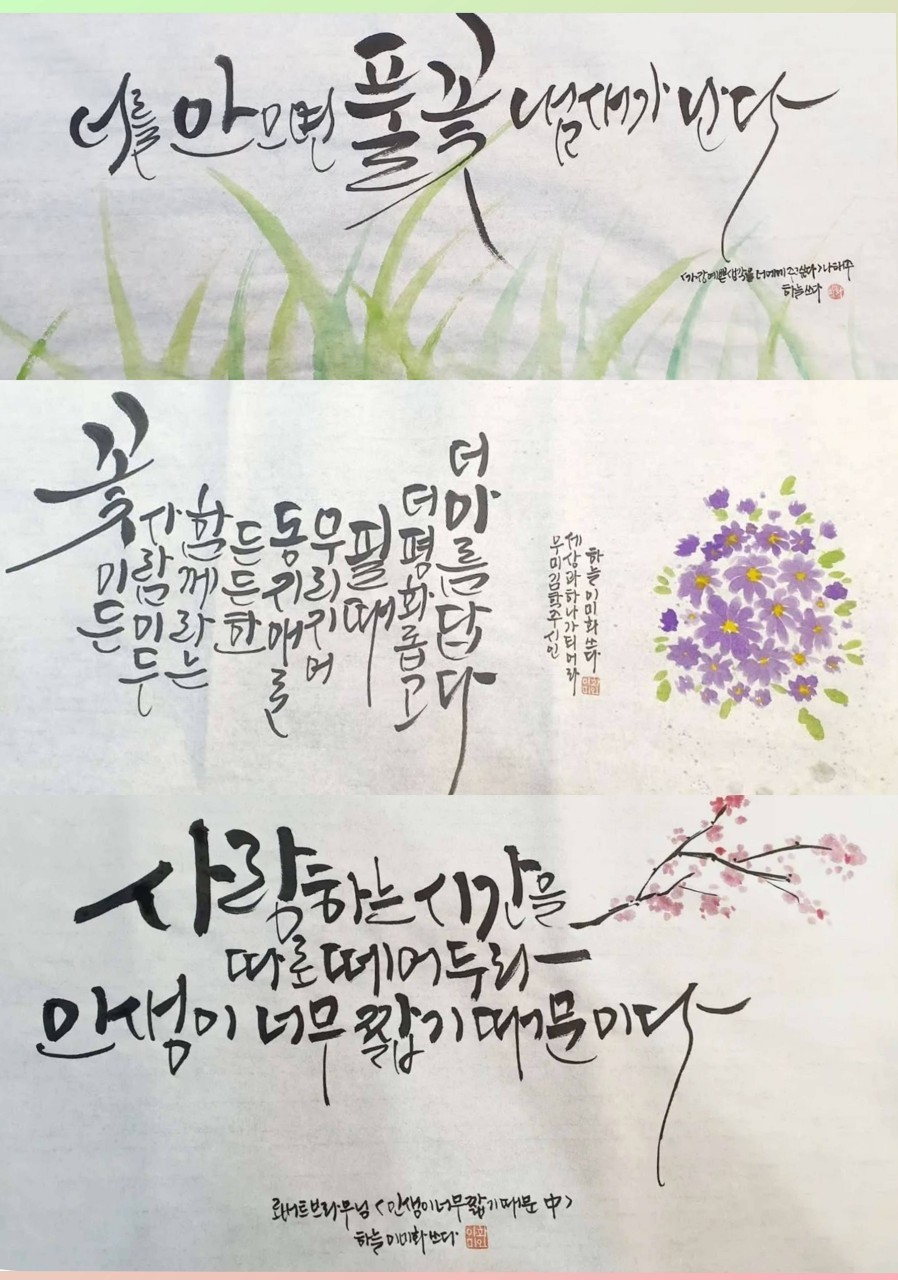 너를 안으면 풀꽃 냄새가 난다
<가장 예쁜 생각을 너에게 주고싶다>
하늘 쓰다
꽃이든
사람이든
함께라는
든든한
무리지어
필때
더 평화롭고
더 아름답다
김학주 시인
세상과 하나가 되더라
하늘 이미화 쓰다
사랑하는 시간을
따로 떼어두라
인생이 너무 짧기 때문이다
<인생이 너무 짧기 때문 中>
하늘 이미화 쓰다